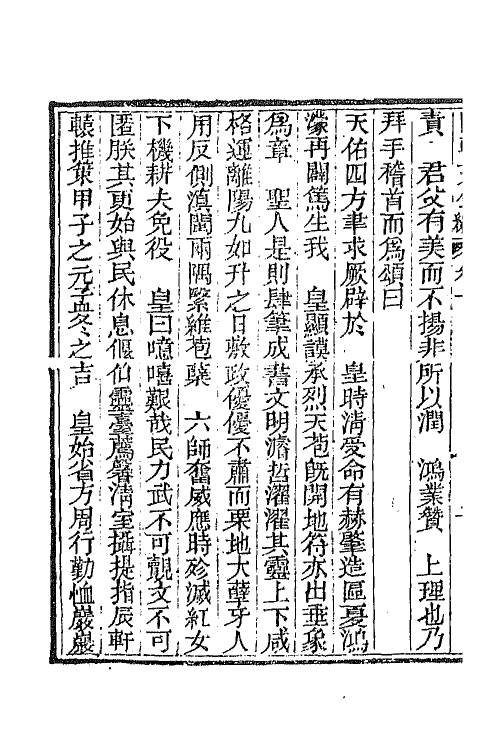 責　君父有美而不揚非所以潤　鴻業贊　上理也乃
拜手稽首而爲頌曰
天佑四方聿求厥辟於　皇時淸受命有赫肇造區夏鴻
濛再闢篤生我　皇顯謨承烈天苞旣開地符亦出垂象
爲章　聖人是則肆筆成書文明濬哲濯濯其靈上下咸
格運離陽九如升之日敷政優優不肅而栗地大孽牙人
用反側滇閩兩隅繄維苞蘖　六師奮威應時殄滅紅女
下機耕夫免役　皇曰噫嘻艱哉民力武不可覿文不可
匿朕其更始與民休息偃伯靈臺薦馨淸室攝提指辰軒
轅推策甲子之元孟冬之吉　皇始省方周行勤恤巖巖